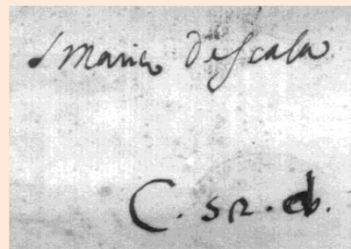 S Maria de scala
C. SR. d.